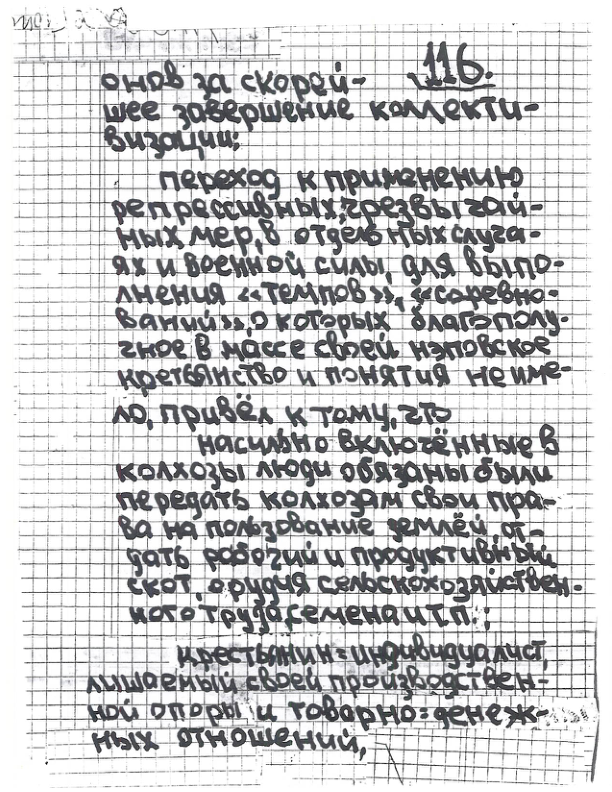 116.
онов за скорей-
шее завершение коллекти-
визации;
переход к применению
репрессивных, чрезвычай-
ных мер, в отдельных случа-
ях и военной силы, для выпо-
лнения «темпов», «соревно-
ваний», о которых благополу-
чное в массе своей нэповское
крестьянство и понятия не име-
ло, привёл к тому, что
насильно включённые в
колхозы люди обязаны были
передать колхозам свои пра-
ва на пользование землёй, от-
дать рабочий и продуктивный
скот, орудия сельскохозяйствен-
ного труда, семена и т.п.;
крестьянин=индивидуалист,
лишаемый своей производствен-
ной опоры и товарно=денеж-
ных отношений,